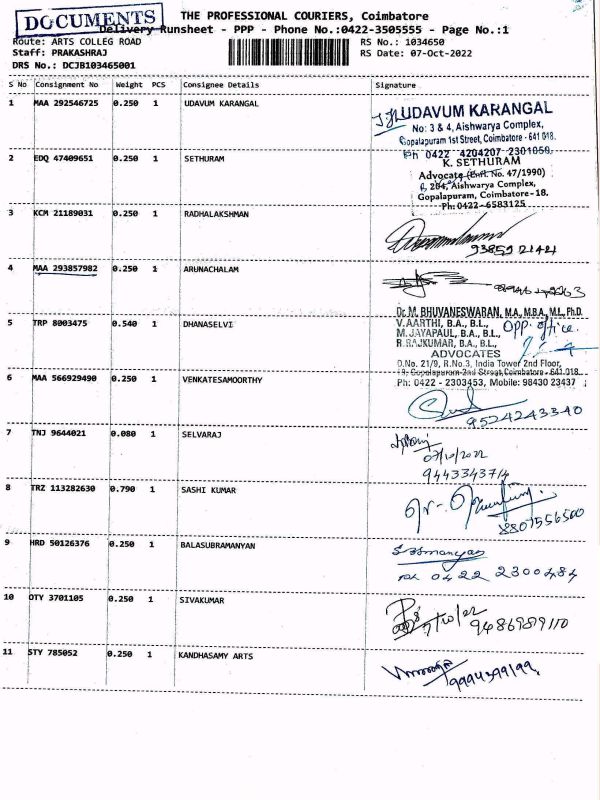 DOCUMENTS
THE PROFESSIONAL COURIERS, Coimbatore
Delivery Runsheet - PPP - Phone No.:0422-3505555 - Page No.:1
Route: ARTS COLLEG ROAD
RS No.: 1034650
Staff: PRAKASHRAJ
RS Date: 07-Oct-2022
DRS No.: DCJB103465001
S No Consignment No Weight PCS Consignee Details Signature
1 MAA 292546725 0.250 1 UDAVUM KARANGAL
UDAVUM KARANGAL
No: 3 & 4, Aishwarya Complex,
Gopalapuram 1st Street, Coimbatore - 641 018.
Ph 0422 4204207 2301059
2 EDQ 47409651 0.250 1 SETHURAM
K. SETHURAM
Advocate (Enrl. No. 47/1990)
204, Aishwarya Complex,
Gopalapuram, Coimbatore-18.
Ph: 0422-6583125
3 KCM 21189031 0.250 1 RADHALAKSHMAN
4 MAA 293857982 0.250 1 ARUNACHALAM
5 TRP 8003475 0.540 1 DHANASELVI
Dr. M. BHUVANESWARAN, M.A., M.B.A., M.L., Ph.D.
V. AARTHI, B.A., B.L.,
M. JAYAPAUL, B.A., B.L.,
R. RAJKUMAR, B.A., B.L.,
OPP. office.
ADVOCATES
D.No. 21/9, R.No.3, India Tower 2nd Floor,
Gopalapuram 2nd Street, Coimbatore - 641 018.
Ph: 0422 - 2303453, Mobile: 98430 23437
6 MAA 566929490 0.250 1 VENKATESAMOORTHY
9524243340
7 TNJ 9644021 0.080 1 SELVARAJ
07/10/2022
9443343714
8 TRZ 113282630 0.790 1 SASHI KUMAR
8807556500
9 HRD 50126376 0.250 1 BALASUBRAMANYAN
0422 2300484
10 OTY 3701105 0.250 1 SIVAKUMAR
7/10/22
9486989110
11 STY 785052 0.250 1 KANDHASAMY ARTS